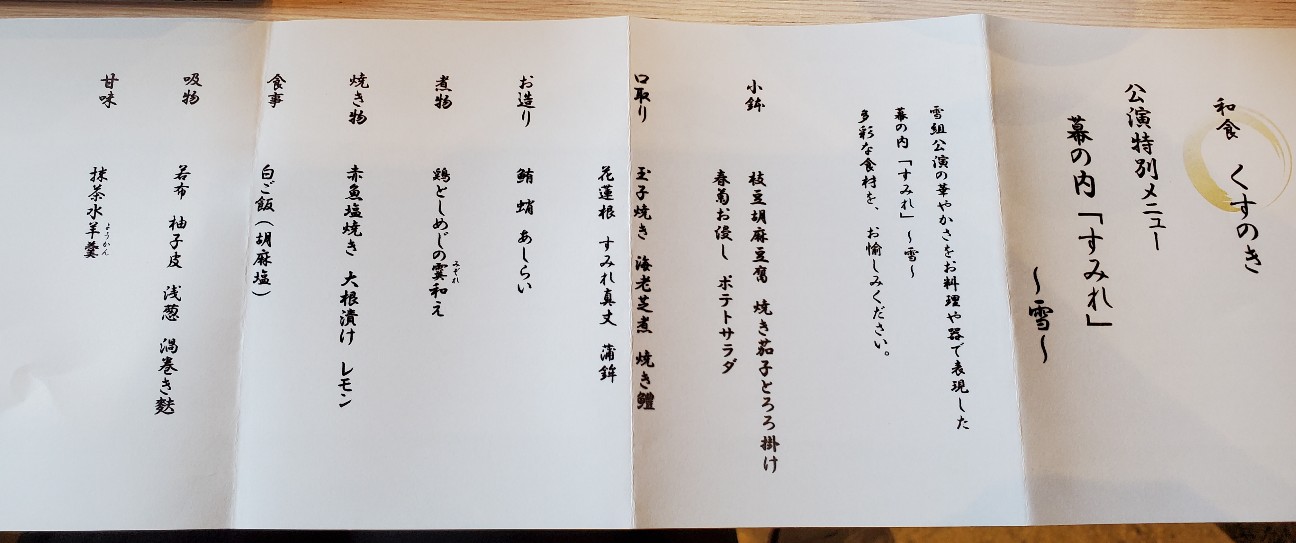 和食 くすのき
公演特別メニュー
幕の内「すみれ」
～雪～
雪組公演の華やかさをお料理や器で表現した
幕の内「すみれ」～雪～
多彩な食材を、お愉しみください。
小鉢
枝豆胡麻豆腐 焼き茄子とろろ掛け
春菊お浸し ポテトサラダ
口取り
玉子焼き 海老芝煮 焼き鱧
花蓮根 すみれ真丈 蒲鉾
お造り
鮪 蛸 あしらい
煮物
鶏としめじの霙和え
みぞれ
焼き物
赤魚塩焼き 大根漬け レモン
食事
白ご飯(胡麻塩)
吸物
若布 柚子皮 浅葱 渦巻き麩
甘味
抹茶水羊羹
ようかん